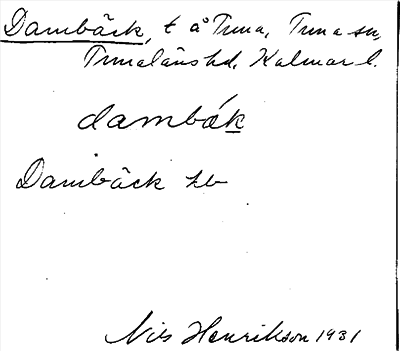 Dambäck, t å Tuna, Tuna sn,
Tunaläns hd, Kalmar l.
dambǽk
Dambäck hb
Nils Henrikson 1931